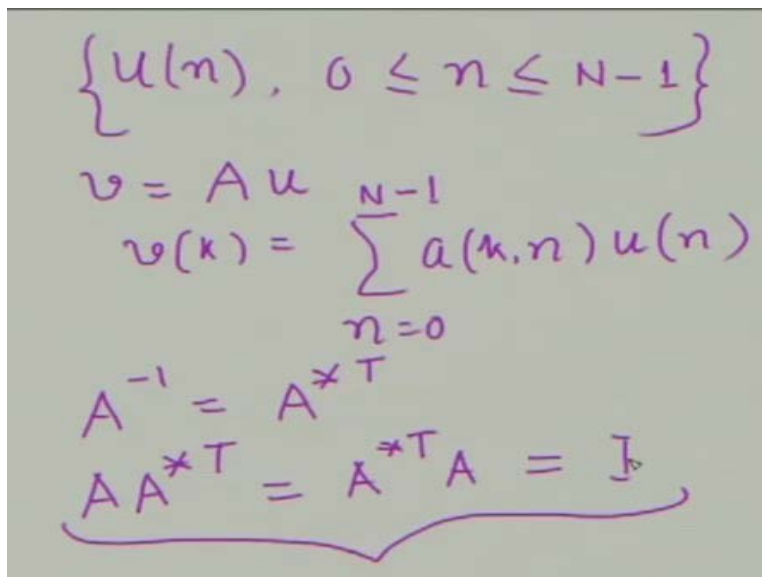 {u(n), 0 ≤ n ≤ N-1}
v = Au
v(k) = ∑_{n=0}^{N-1} a(k,n) u(n)
A^{-1} = A^{*T}
AA^{*T} = A^{*T}A = I